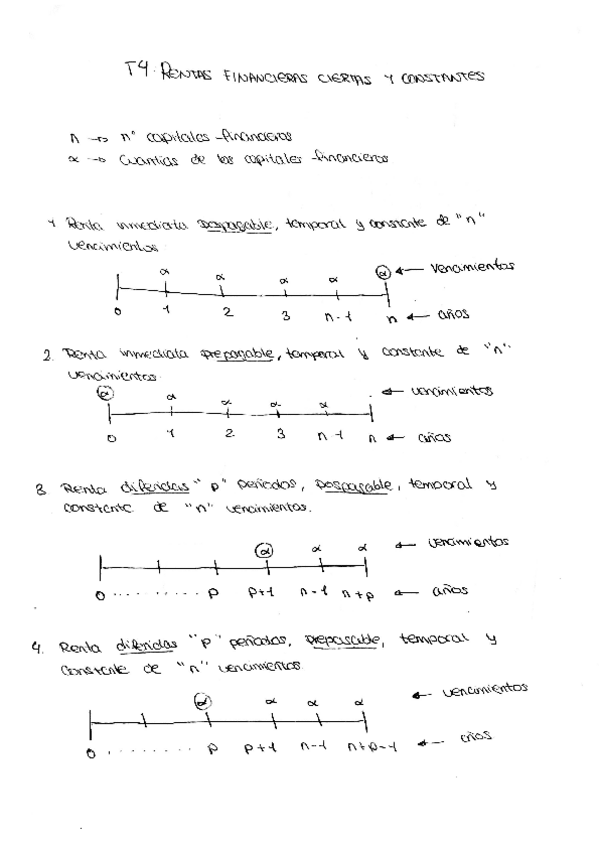 T4. RENTAS FINANCIERAS CIERTAS Y CONSTANTES
n → nº capitales financieros
α → Cuantías de los capitales financieros
1. Renta inmediata pospagable, temporal y constante de "n"
vencimientos
α α α α α ← vencimientos
0 1 2 3 n-1 n ← años
2. Renta inmediata prepagable, temporal y constante de "n"
vencimientos.
α α α α α ← vencimientos
0 1 2 3 n-1 n ← años
3. Renta diferidas "p" periodos, pospagable, temporal y
constante de "n" vencimientos.
α α α ← vencimientos
0 ......... p p+1 n-1 n+p ← años
4. Renta diferidas "p" periodos, prepagable, temporal y
constante de "n" vencimientos.
α α α α ← vencimientos
0 ......... p p+1 n-1 n+p-1 ← años